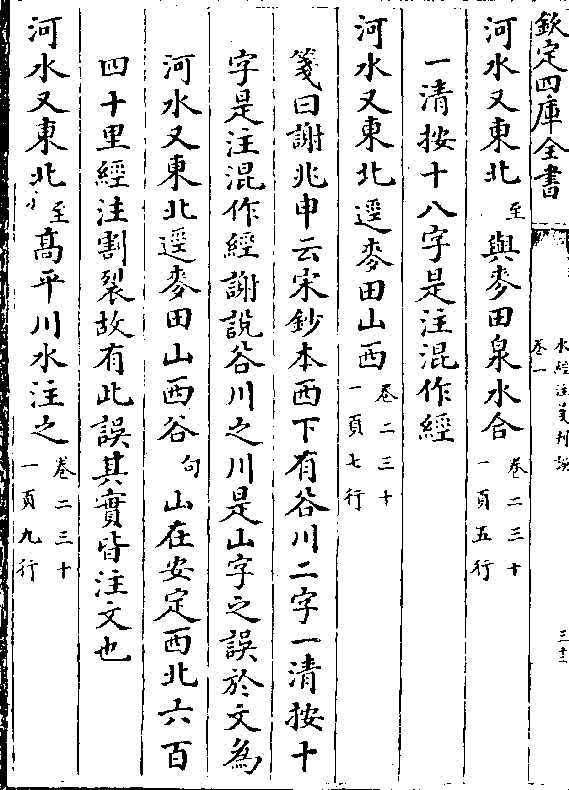 欽定四庫全書
水經注箋刊誤
卷一
三十三
河水又東北至與麥田泉水合卷二三十一頁五行
一清按十八字是注混作經
河水又東北逕麥田山西卷二三十一頁七行
箋曰謝兆申云宋鈔本西下有谷川二字一清按十
字是注混作經謝說谷川之川是山字之誤於文為
河水又東北逕麥田山西谷句山在安定西北六百
四十里經注割裂故有此誤其實皆注文也
河水又東北至高平川水注之卷二三十一頁九行